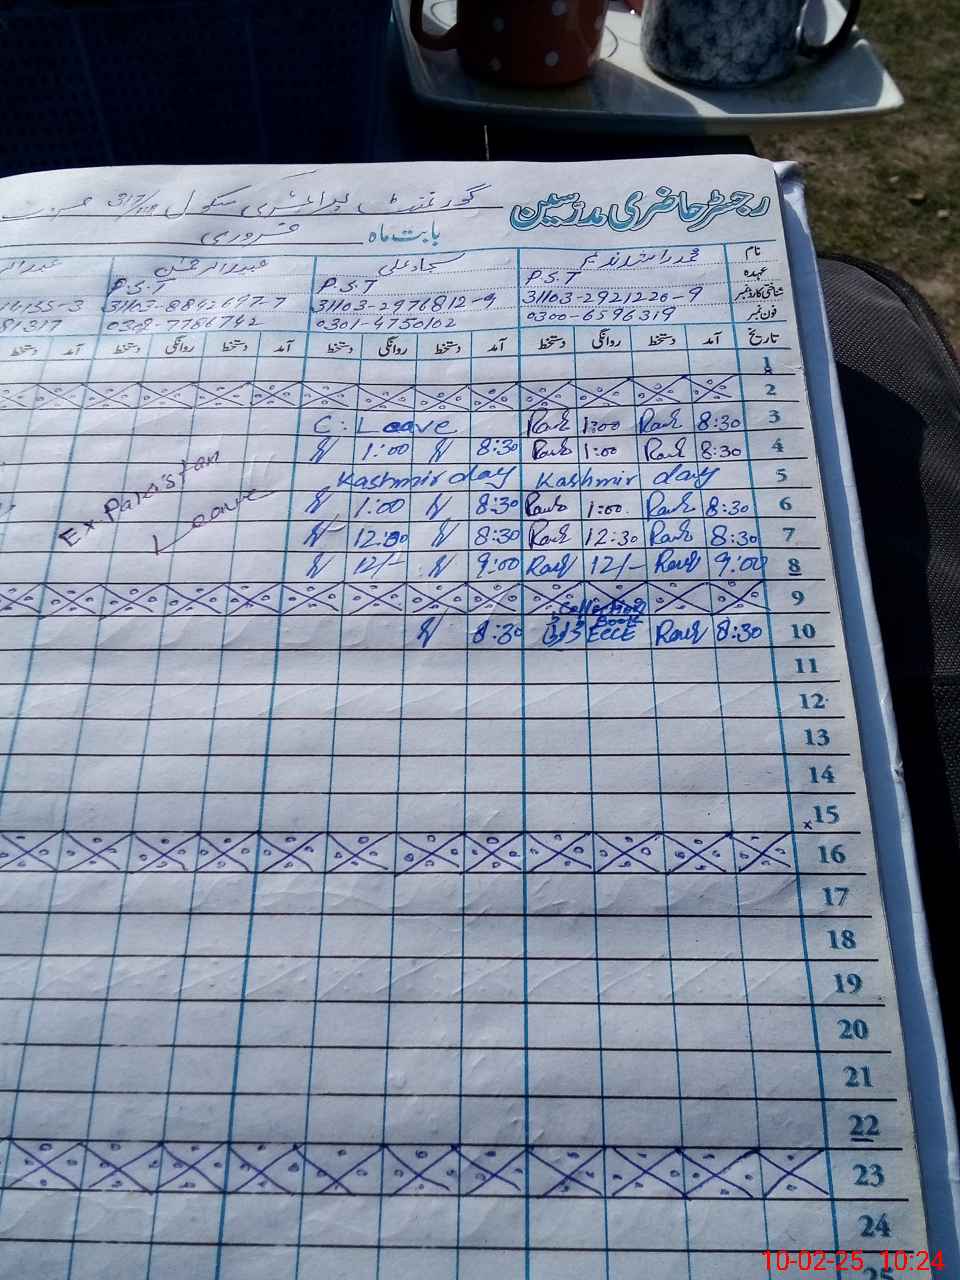 رجسٹر حاضری مدرسین
گورنمنٹ پرائمری سکول
بابت ماہ فروری
نام محمد راشد ندیم سجاد علی عبدالرحمٰن
عہدہ P.S.T P.S.T P.S.T
شناختی کارڈ نمبر 31103-2921226-9 31103-2976812-9 31103-8842697-7
فون نمبر 0300-6596319 0301-4750102 81317
تاریخ آمد دستخط روانگی دستخط آمد دستخط روانگی دستخط آمد دستخط روانگی دستخط آمد دستخط
1
2
3 8:30 1:00 C. Leave
4 8:30 1:00 8:30 1:00
5 Kashmir day Kashmir day
6 8:30 1:00 8:30 1:00
7 8:30 12:30 8:30 12:30
8 9:00 12/- 9:00 12/-
Ex. Pakistan
Leave
9
10 8:30 Collection Book ECCE 8:30
11
12
13
14
x 15
16
17
18
19
20
21
22
23
24
25
10-02-25, 10:24